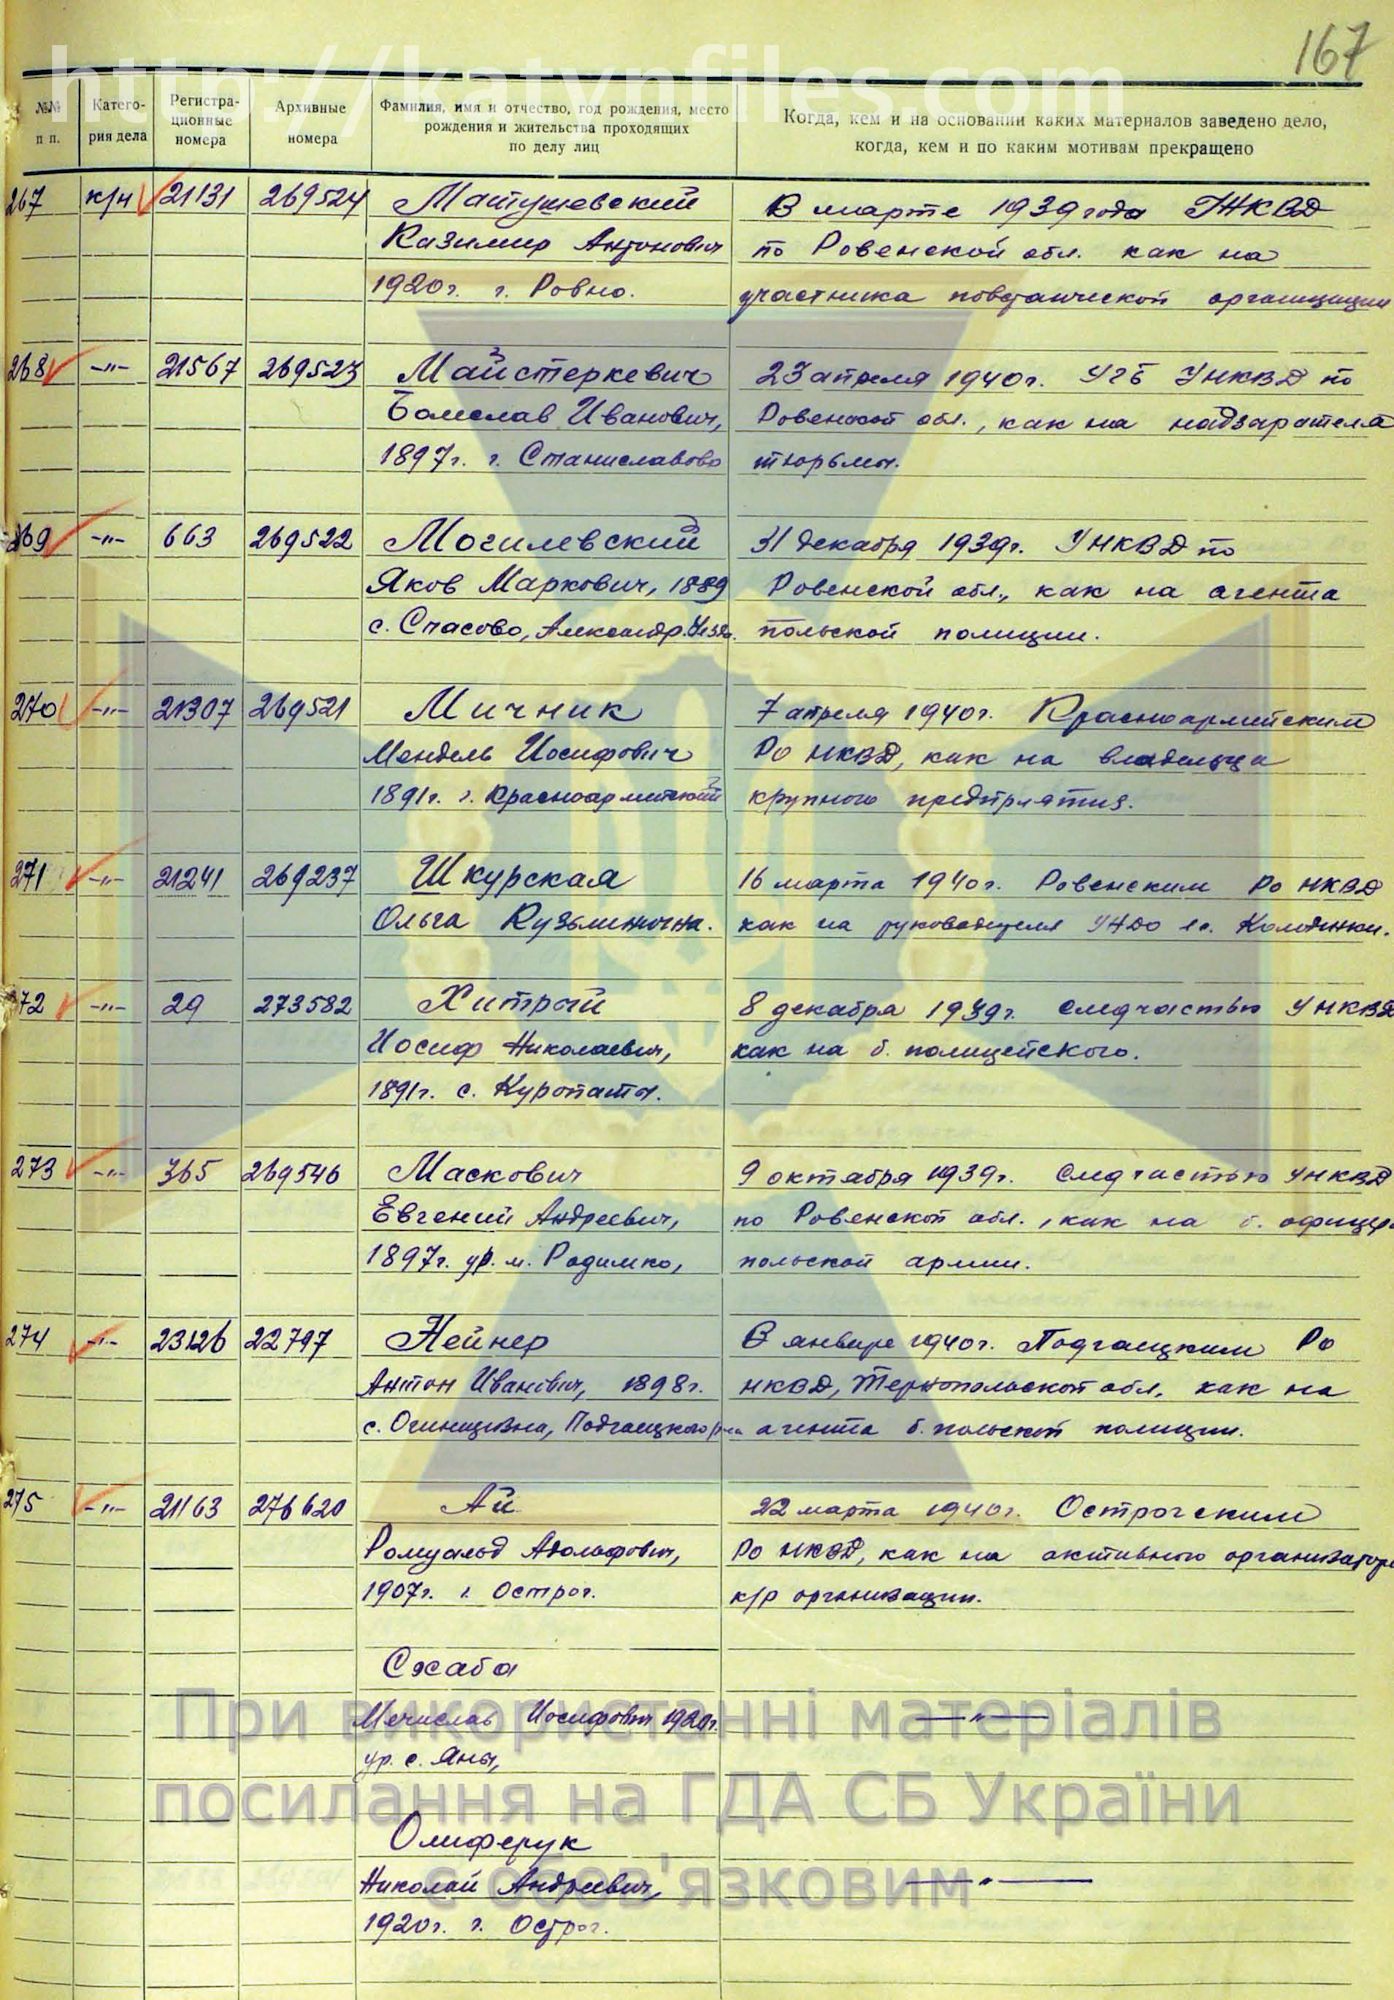 167
http://katynfiles.com
№№ п п.
Катего-
рия дела
Регистра-
ционные
номера
Архивные
номера
Фамилия, имя и отчество, год рождения, место
рождения и жительства проходящих
по делу лиц
Когда, кем и на основании каких материалов заведено дело,
когда, кем и по каким мотивам прекращено
267 к/ч 21131 269524 Матушевский В марте 1939 года НКВД
Казимир Антонович по Ровенской обл. как на
1920г. г. Ровно. участника повстанческой организации
268 -"- 21567 269523 Майстеркевич 23 апреля 1940г. УГБ УНКВД по
Болеслав Иванович, Ровенской обл., как на надзирателя
1897г. г. Станиславово тюрьмы.
269 -"- 663 269522 Могилевский 31 декабря 1939г. УНКВД по
Яков Маркович, 1889 Ровенской обл., как на агента
с. Спасово, Александр. уезда. польской полиции.
270 -"- 21307 269521 Мичник 7 апреля 1940г. Красноармейским
Мендель Иосифович РО НКВД, как на владельца
1891г. г. Красноармейский крупного предприятия.
271 -"- 21241 269237 Шкурская 16 марта 1940г. Ровенским РО НКВД
Ольга Кузьминична. как на руководителя УНДО в с. Колоденки.
272 -"- 29 273582 Хитрый 8 декабря 1939г. следчастью УНКВД
Иосиф Николаевич, как на б. полицейского.
1891г. с. Куропаты.
273 -"- 365 269546 Маскович 9 октября 1939г. Следчастью УНКВД
Евгений Андреевич, по Ровенской обл., как на б. офицера
1897г. ур. м. Радимко, польской армии.
274 -"- 23126 22797 Нейнер В январе 1940г. Подгаецким РО
Антон Иванович, 1898г. НКВД, Тернопольской обл. как на
с. Подгаецкого р-на агента б. польской полиции.
275 -"- 21163 276620 Ай 22 марта 1940г. Острогским
Ромуальд Адольфович, РО НКВД, как на активного организатора
1907г. г. Острог. к/р организации.
Схаба
Мечислав Иосифович 1920г. -"-
ур. с. Яны,
Олиферук
Николай Андреевич, -"-
1920г. г. Острог.
При використанні матеріалів
посилання на ГДА СБ України
є обов'язковим